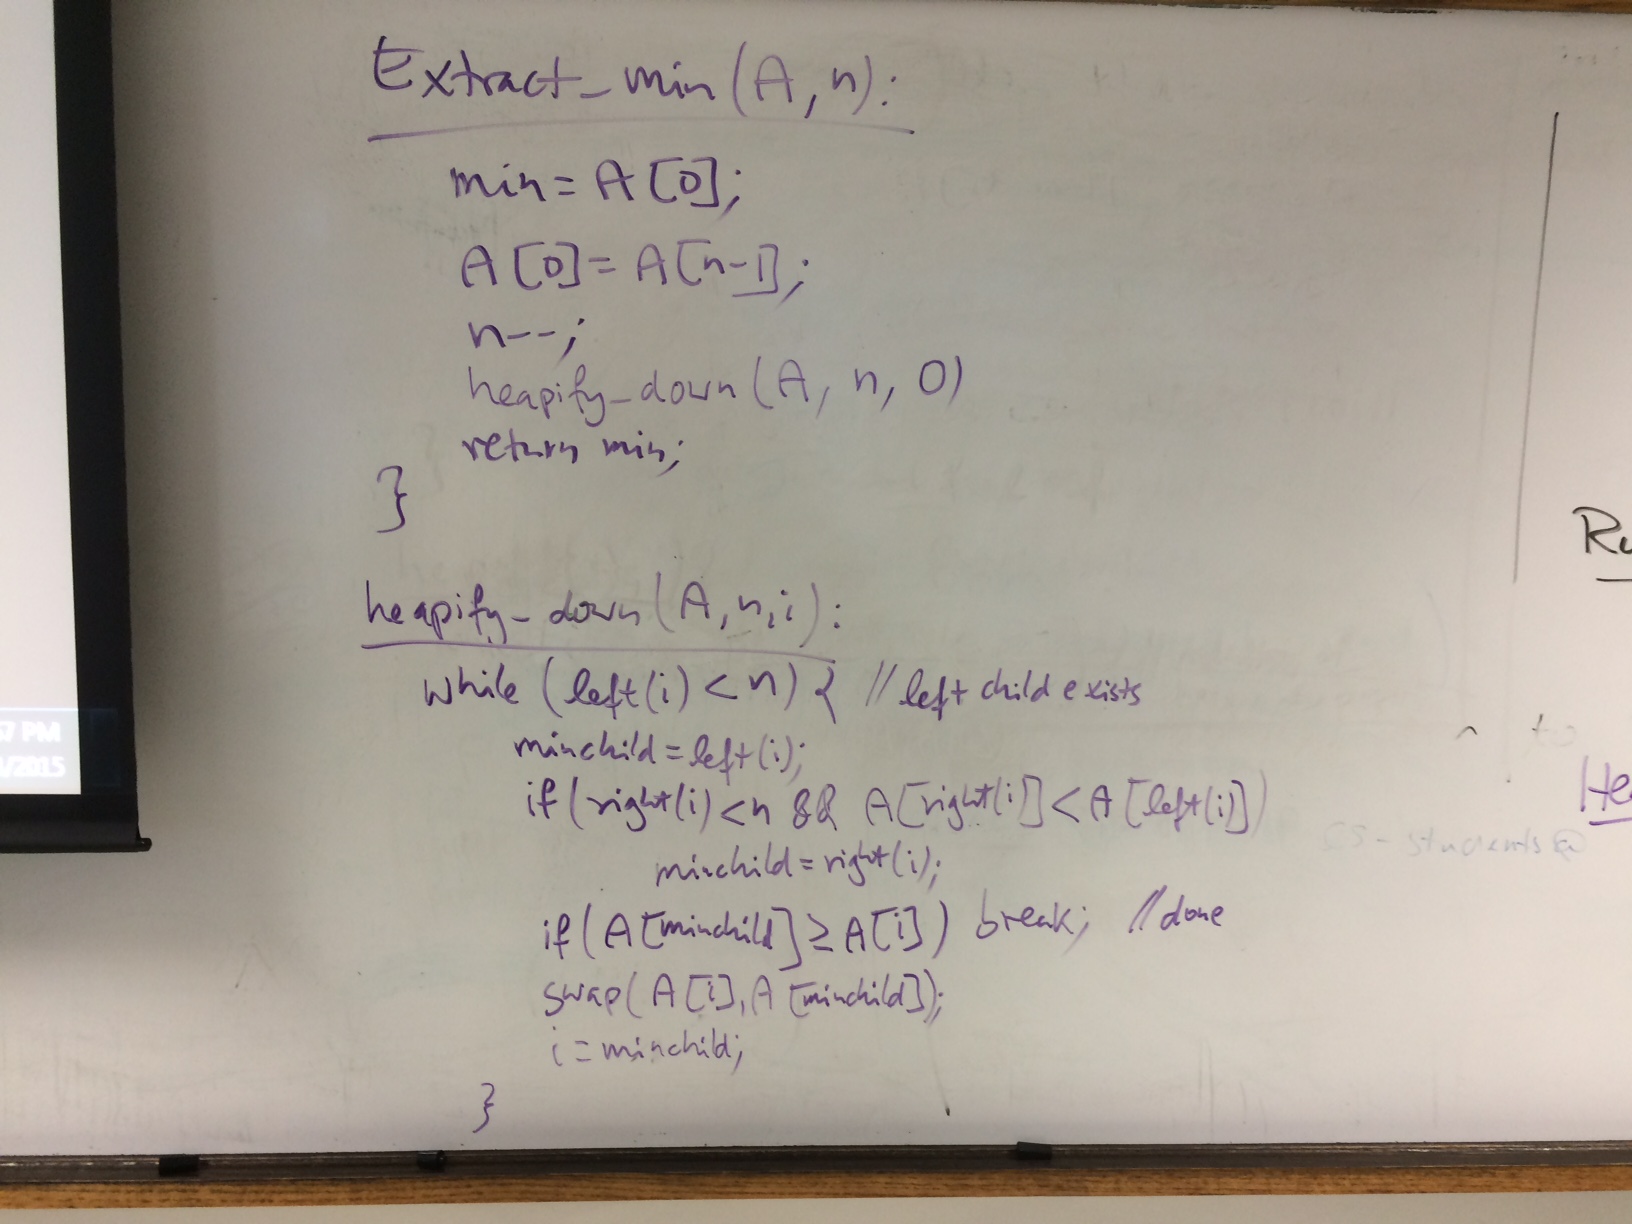 Extract_min(A, n):
min = A[0];
A[0] = A[n-1];
n--;
heapify_down(A, n, 0)
return min;
}
heapify_down(A, n, i):
while (left(i) < n) { // left child exists
minchild = left(i);
if (right(i) < n && A[right(i)] < A[left(i)])
minchild = right(i);
if (A[minchild] ≥ A[i]) break; // done
swap(A[i], A[minchild]);
i = minchild;
}
7 PM
/2015
Ru
to
Hea
CS-students@